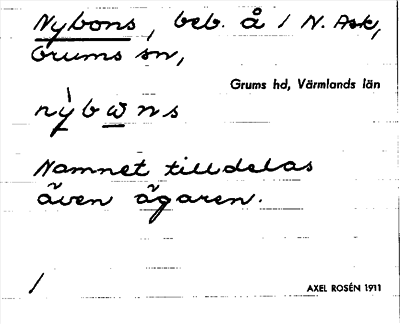 Nybons, beb. å 1 N. Ask,
Grums sn,
Grums hd, Värmlands län
nỳbwns
Namnet tilldelas
även ägaren.
/
AXEL ROSÉN 1911